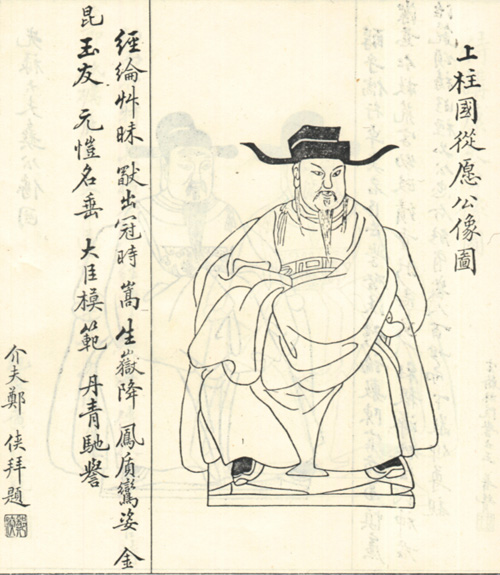 上柱國從愿公像圖
經綸艸昧 猷出冠時 嵩生嶽降 鳳质鸞姿 金
昆玉友 元愷名垂 大臣模範 丹青馳譽
介夫鄭 侠拜題